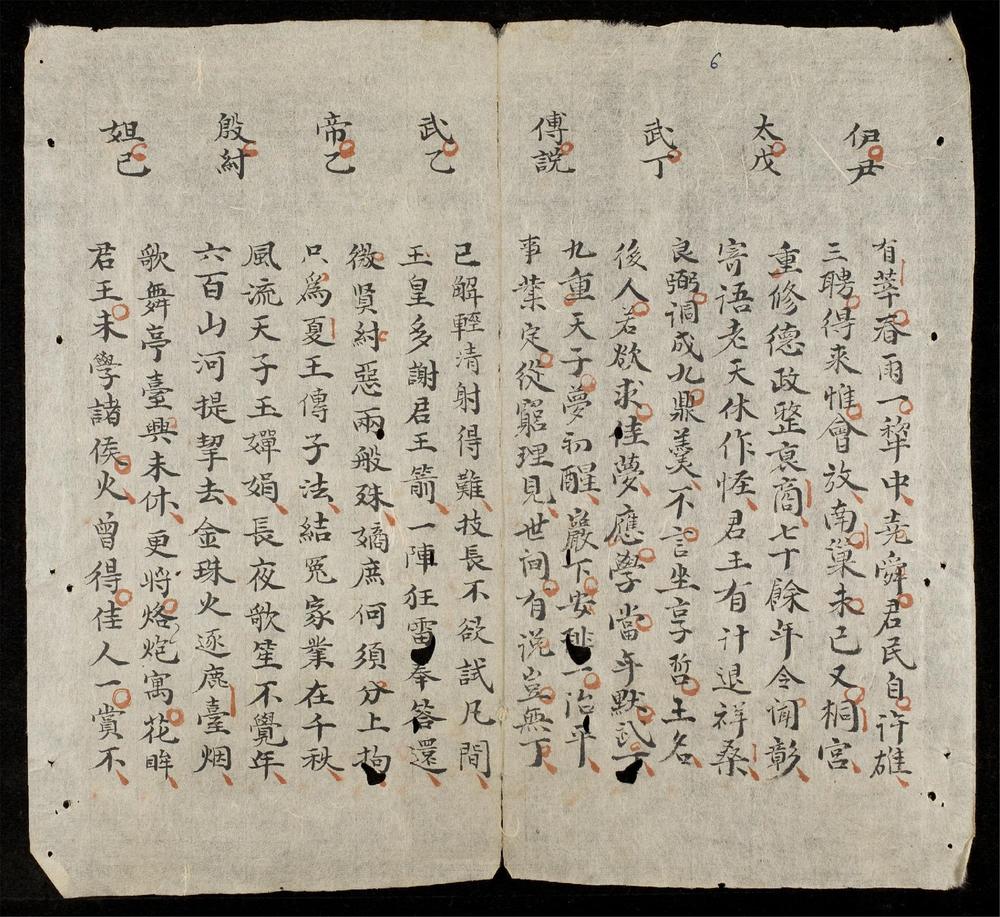 6
伊尹
有莘春雨一犂中堯舜君民自許雄
三聘得來惟會放南巢未已又桐宮
太戊
重修德政整衰商七十餘年令聞彰
寄語老天休作恠君王有計退祥桑
武丁
良弼調成九鼎羹不言坐享哲王名
後人若欲求佳夢應學當年默武丁
傅説
九重天子夢初醒巖下安 一治平
事業定從窮理見世间有说豈無丁
武乙
已解輕清射得難技長不欲試凡間
玉皇多謝君王箭一陣狂雷奉答還
帝乙
微賢紂惡兩般殊嫡庶何須分上拘
只爲夏王傳子法結冤家業在千秩
殷紂
風流天子玉嬋娟長夜歌笙不覺年
六百山河提挈去金珠火逐鹿臺烟
妲己
歌舞亭臺興未休更将烙炮寓花眸
君王未學諸侯火曾得佳人一賞不